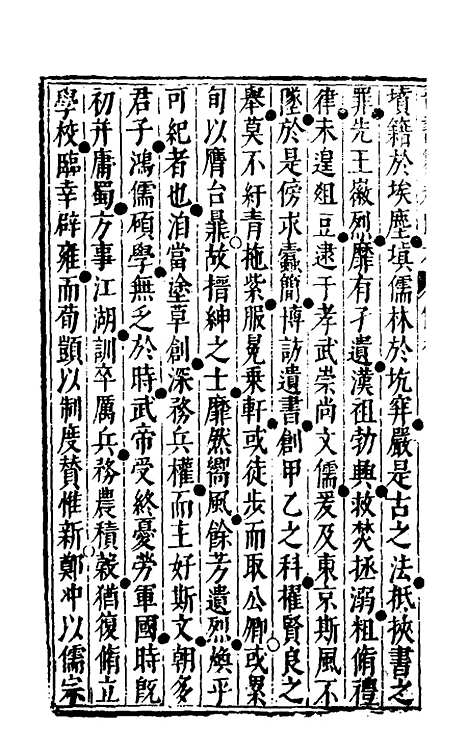 墳籍於埃塵塡儒林於坑穽嚴是古之法抵挾書之
罪先王徽烈靡有孑遺漢祖勃興救焚拯溺粗脩禮
律未遑俎豆逮于孝武崇尚文儒爰及東京斯風不
墜於是傍求蠹簡博訪遺書創甲乙之科擢賢良之
舉莫不紆靑拖紫服冕乗軒或徒步而取公卿或累
旬以膺台鼎故搢紳之士靡然嚮風餘芳遺烈煥乎
可紀者也洎當塗草創深務兵權而主好斯文朝多
君子鴻儒碩學無乏於時武帝受終憂勞軍國時旣
初并庸蜀方事江湖訓卒厲兵務農積穀猶復脩立
學校臨幸辟雍而荀顗以制度贊惟新鄭冲以儒宗